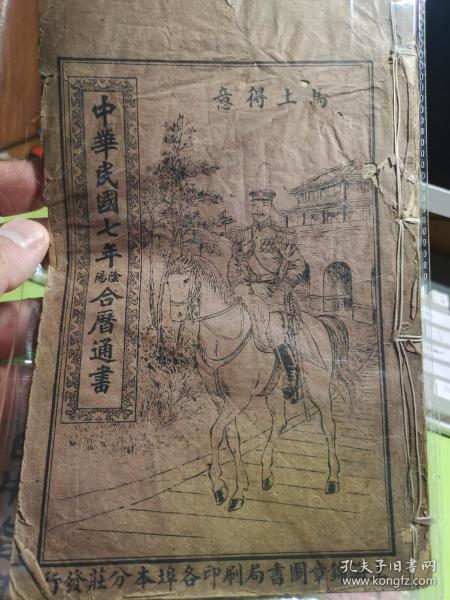 馬上得意
中華民國七年陰陽合曆通書
錦章圖書局刷印各埠本分莊發行
孔夫子旧书网